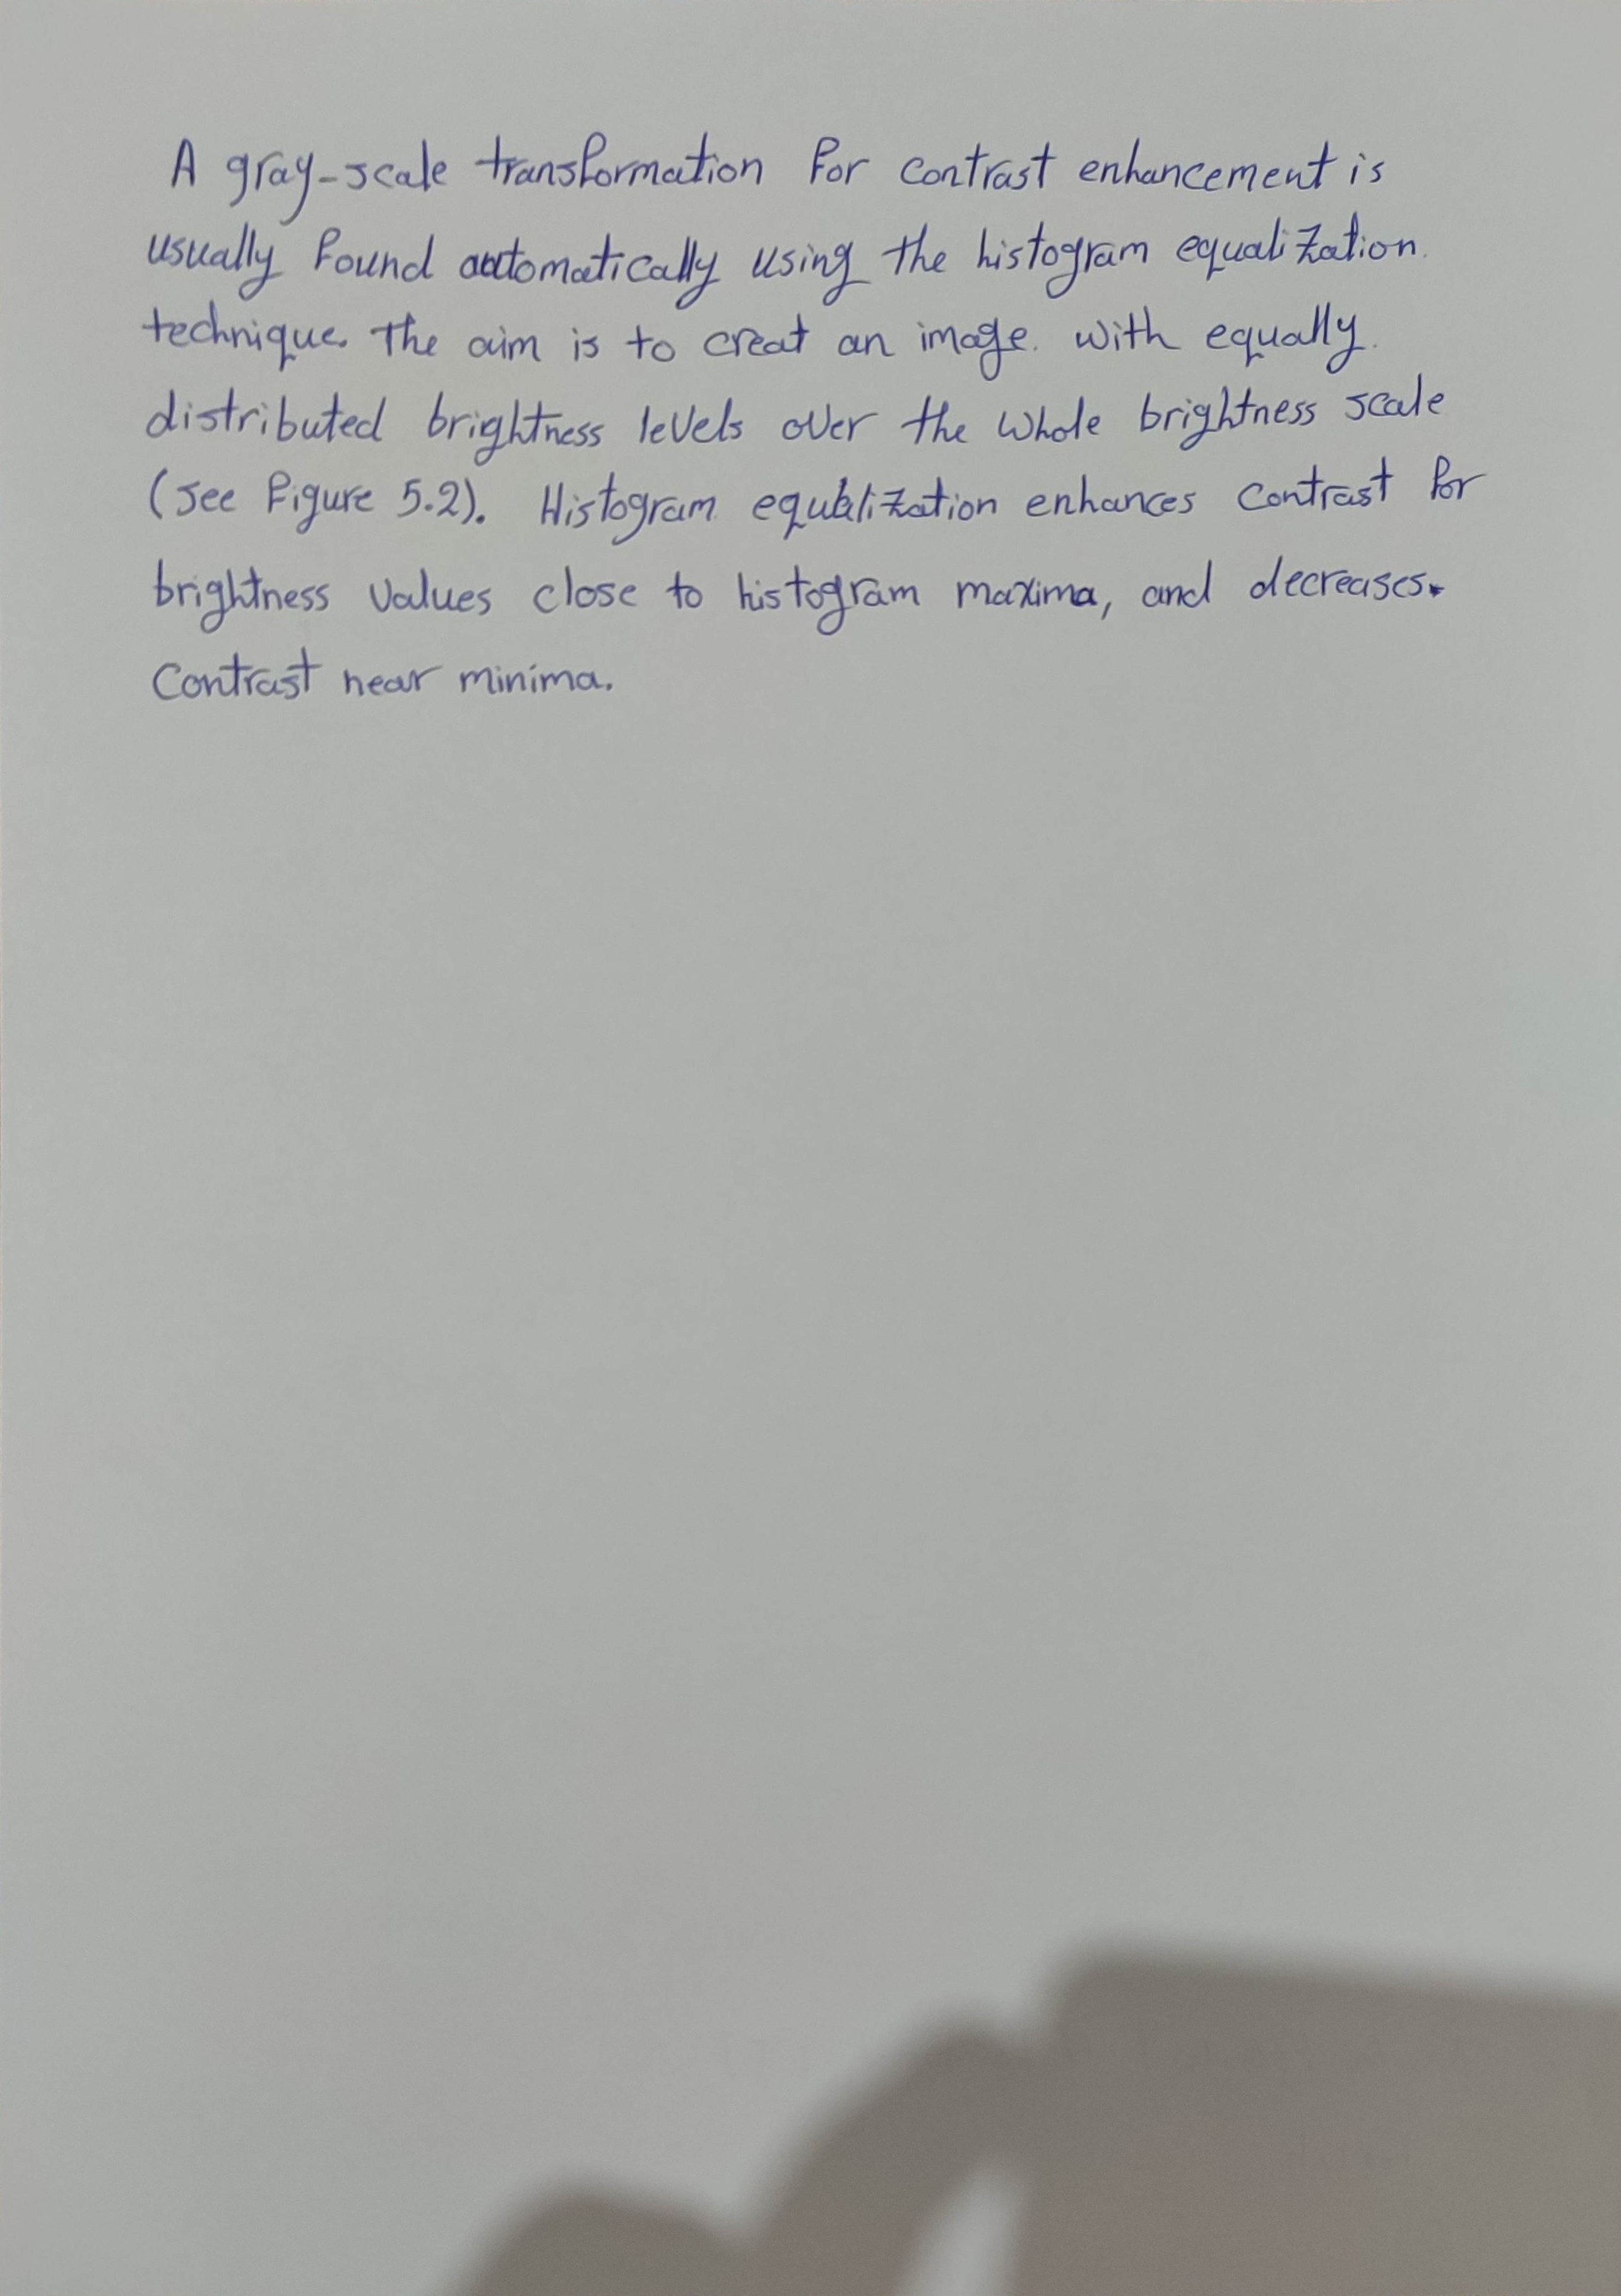 A gray-scale transformation for contrast enhancement is
usually found automatically using the histogram equalization
technique. The aim is to creat an image with equally
distributed brightness levels over the whole brightness scale
(see figure 5.2). Histogram equalization enhances contrast for
brightness values close to histogram maxima, and decreases
contrast near minima.